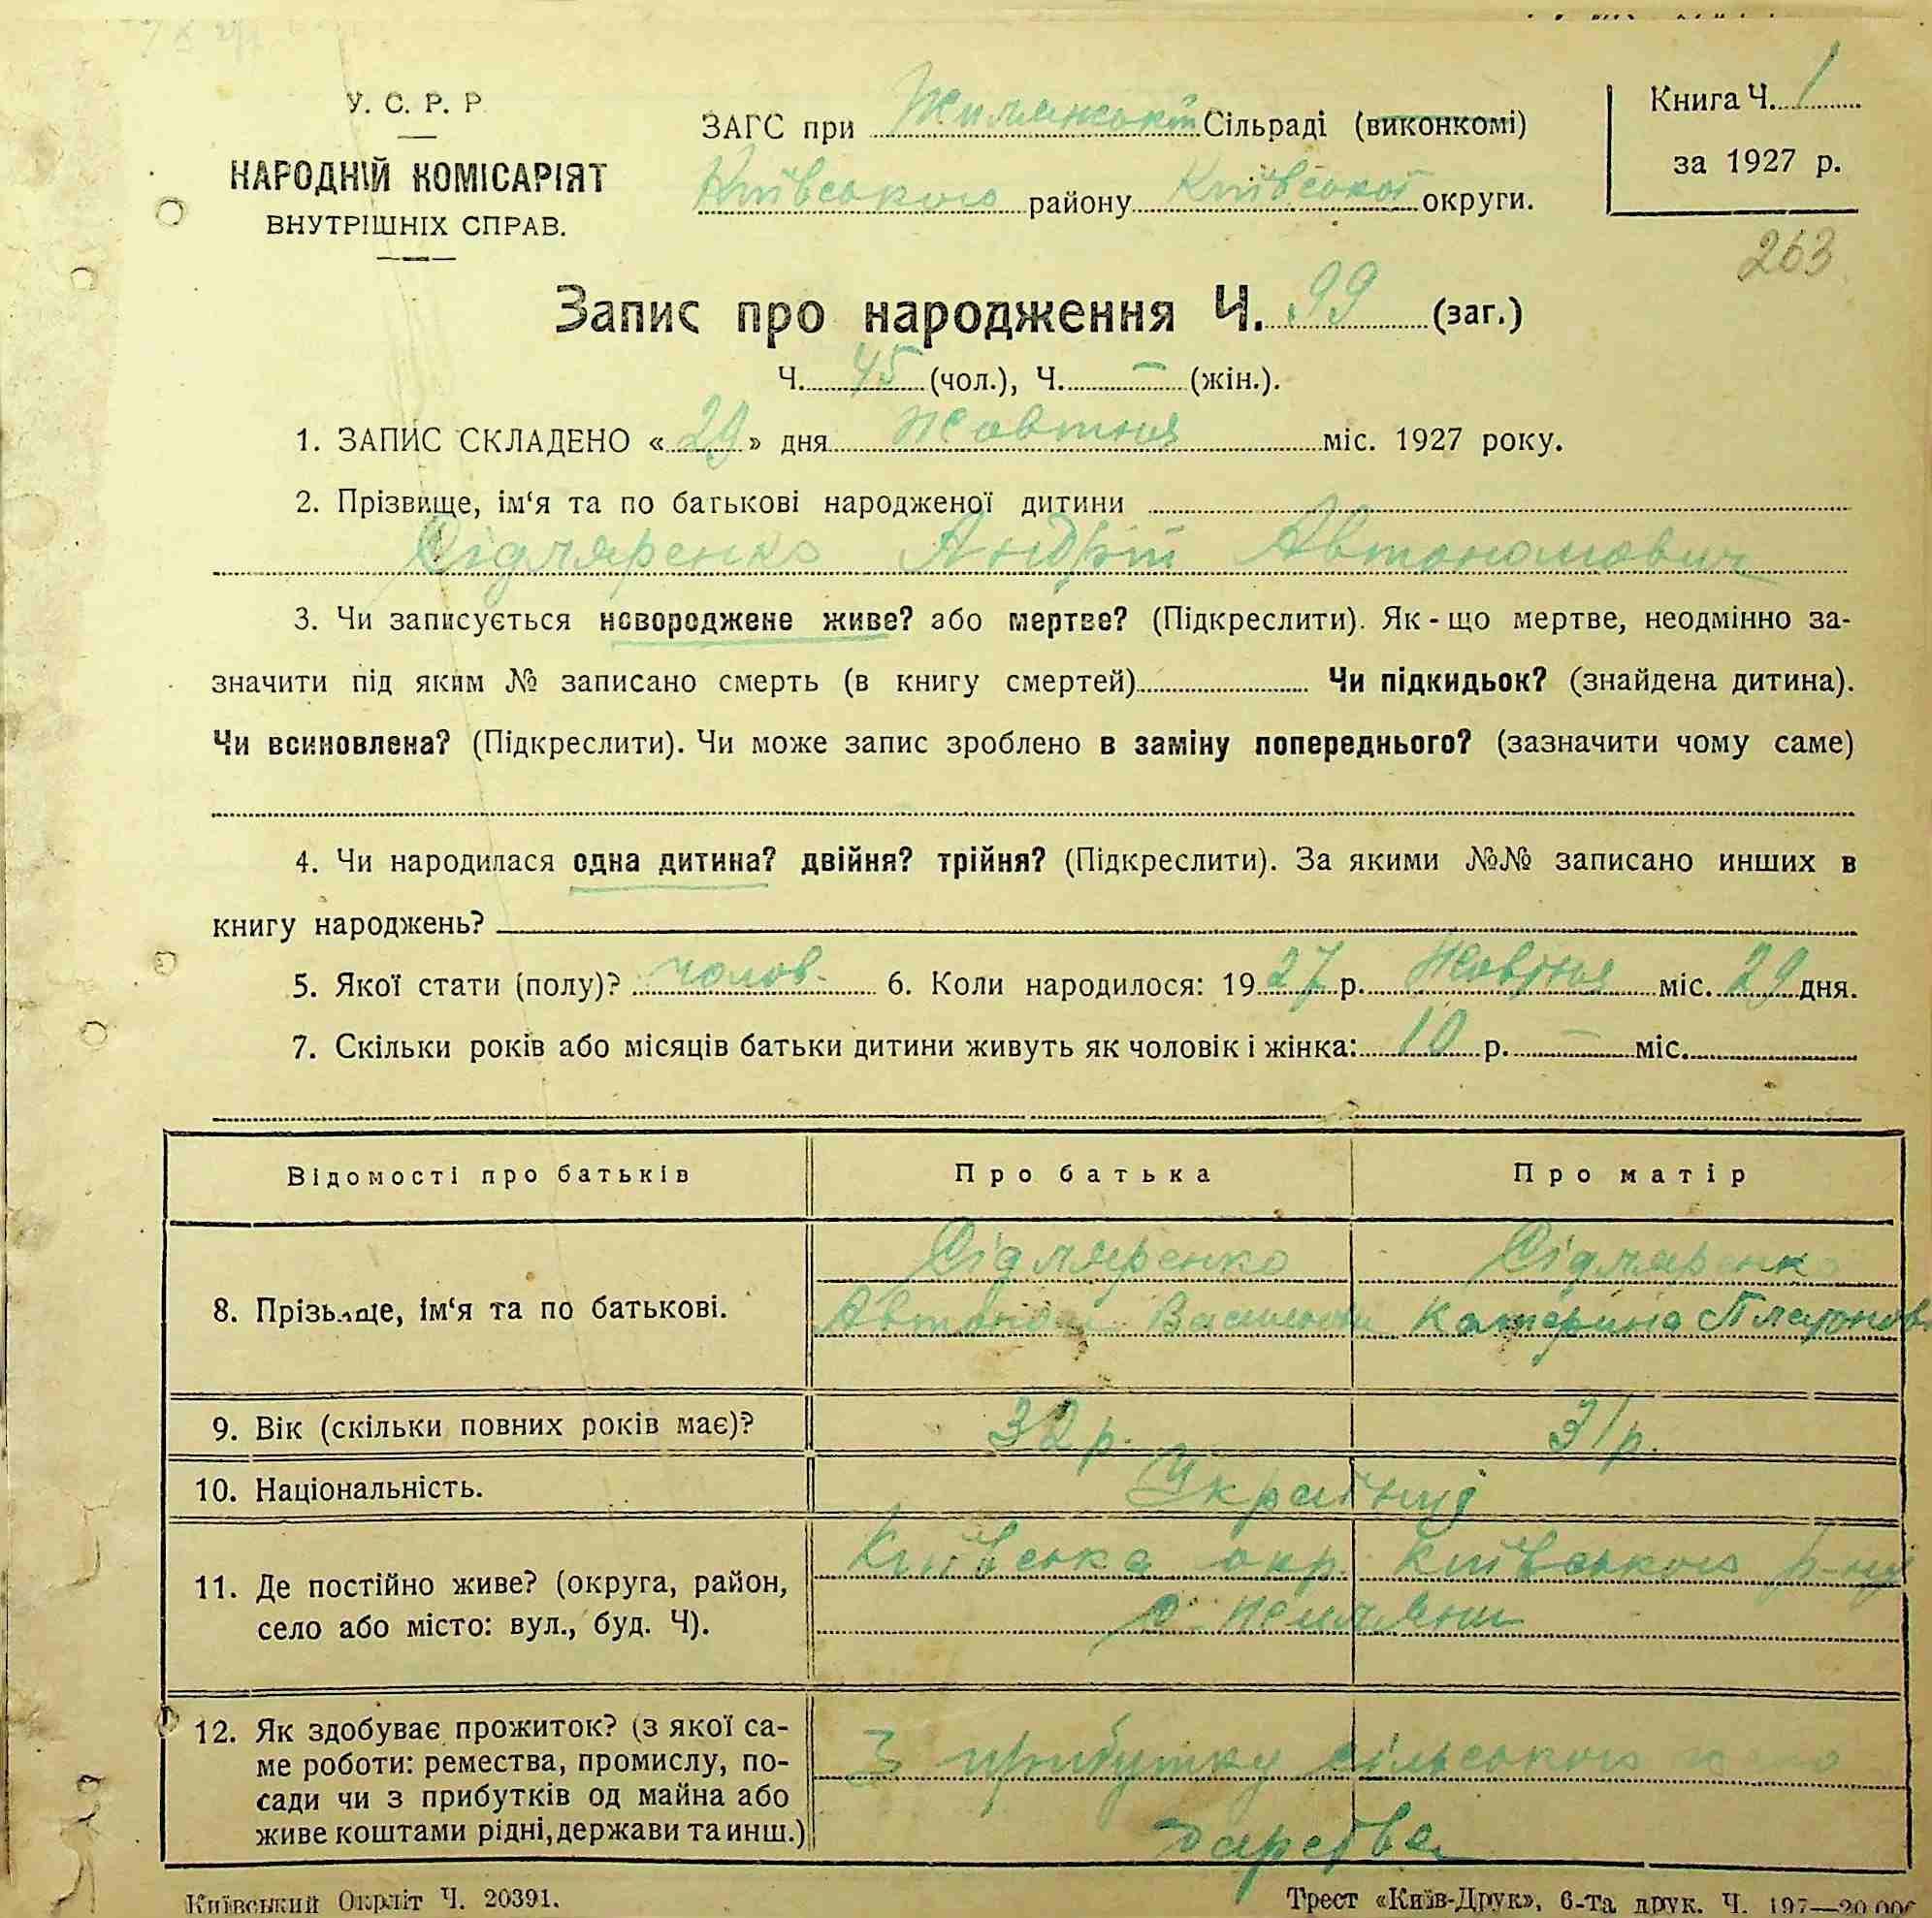 У. С. Р. Р.
НАРОДНІЙ КОМІСАРІЯТ
ВНУТРІШНІХ СПРАВ.
ЗАГС при Жилянській Сільраді (виконкомі)
Київського району Київської округи.
Книга Ч. 1
за 1927 р.
263
Запис про народження Ч. 99 (заг.)
Ч. 45 (чол.), Ч. — (жін.).
1. ЗАПИС СКЛАДЕНО «29» дня Жовтня міс. 1927 року.
2. Прізвище, ім‘я та по батькові народженої дитини
Сідляренко Андрій Автономович
3. Чи записується новороджене живе? або мертве? (Підкреслити). Як-що мертве, неодмінно за-
значити під яким № записано смерть (в книгу смертей) Чи підкидьок? (знайдена дитина).
Чи всиновлена? (Підкреслити). Чи може запис зроблено в заміну попереднього? (зазначити чому саме)
4. Чи народилася одна дитина? двійня? трійня? (Підкреслити). За якими №№ записано инших в
книгу народжень?
5. Якої стати (полу)? чолов. 6. Коли народилося: 1927 р. Жовтня міс. 29 дня.
7. Скільки років або місяців батьки дитини живуть як чоловік і жінка: 10 р. — міс.
Відомості про батьків Про батька Про матір
8. Прізвище, ім‘я та по батькові.
Сідляренко Сідляренко
Автоном Василович Катерина Платонов
9. Вік (скільки повних років має)? 32 р. 31 р.
10. Національність. Українці
11. Де постійно живе? (округа, район,
село або місто: вул., буд. Ч).
Київська окр. Київського р-ну
с. Жиляни
12. Як здобуває прожиток? (з якої са-
ме роботи: ремества, промислу, по-
сади чи з прибутків од майна або
живе коштами рідні, держави та инш.)
З прибутку сільського госпо
дарства
Київський Окрліт Ч. 20391.
Трест «Київ-Друк», 6-та друк. Ч. 197—20.000